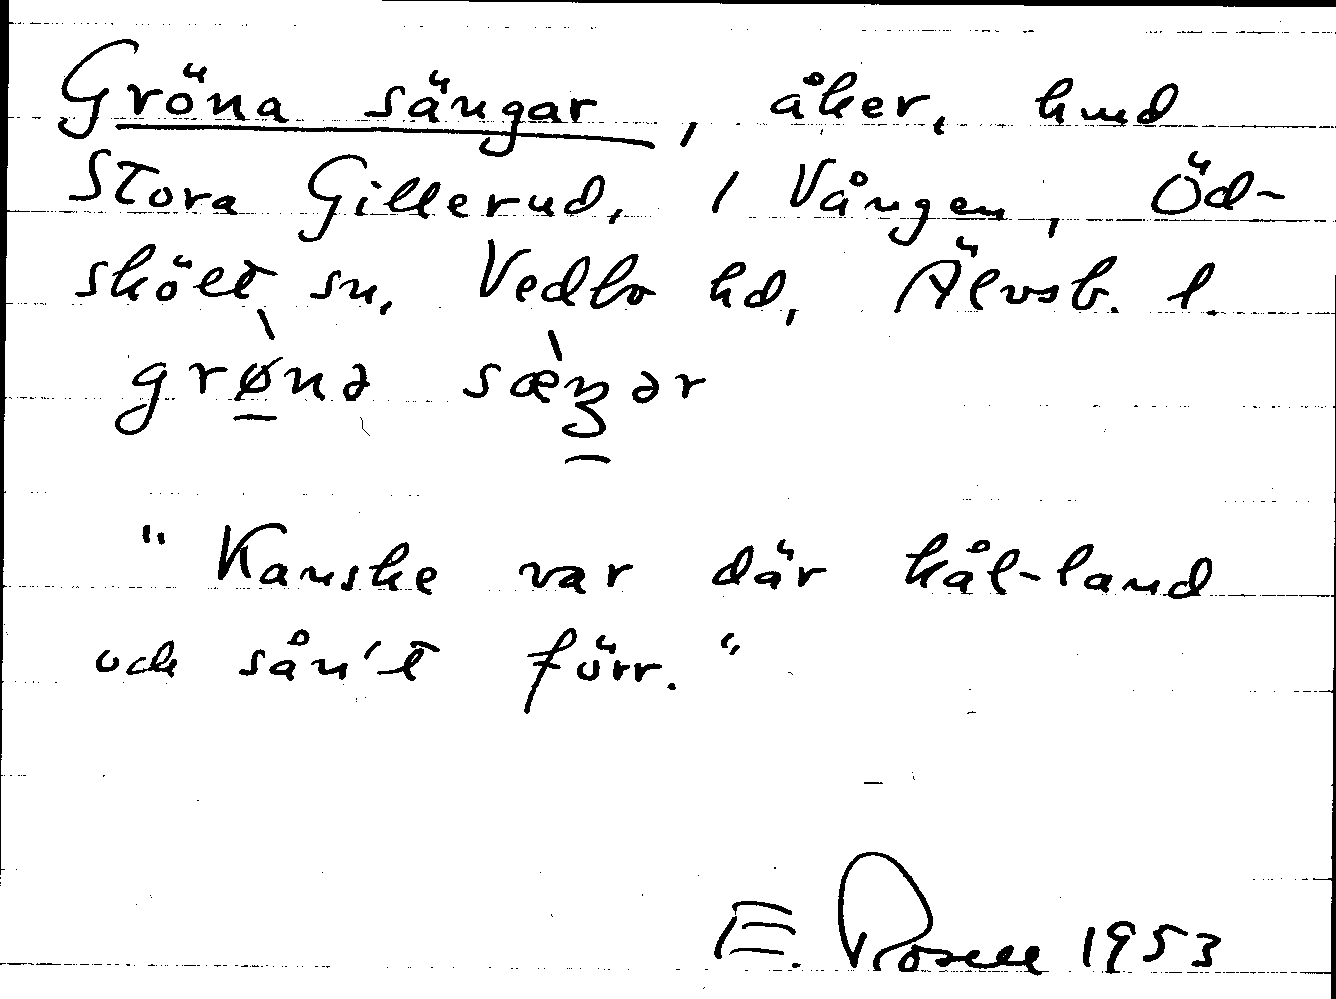 Gröna sängar, åker, hmd
Stora Gillerud, 1 Vången, Öd-
skölt sn, Vedbo hd, Älvsb. l.
grø̀nə sæ̀ŋər
"Kanske var där kål-land
och sån't förr."
E. Rosell 1953